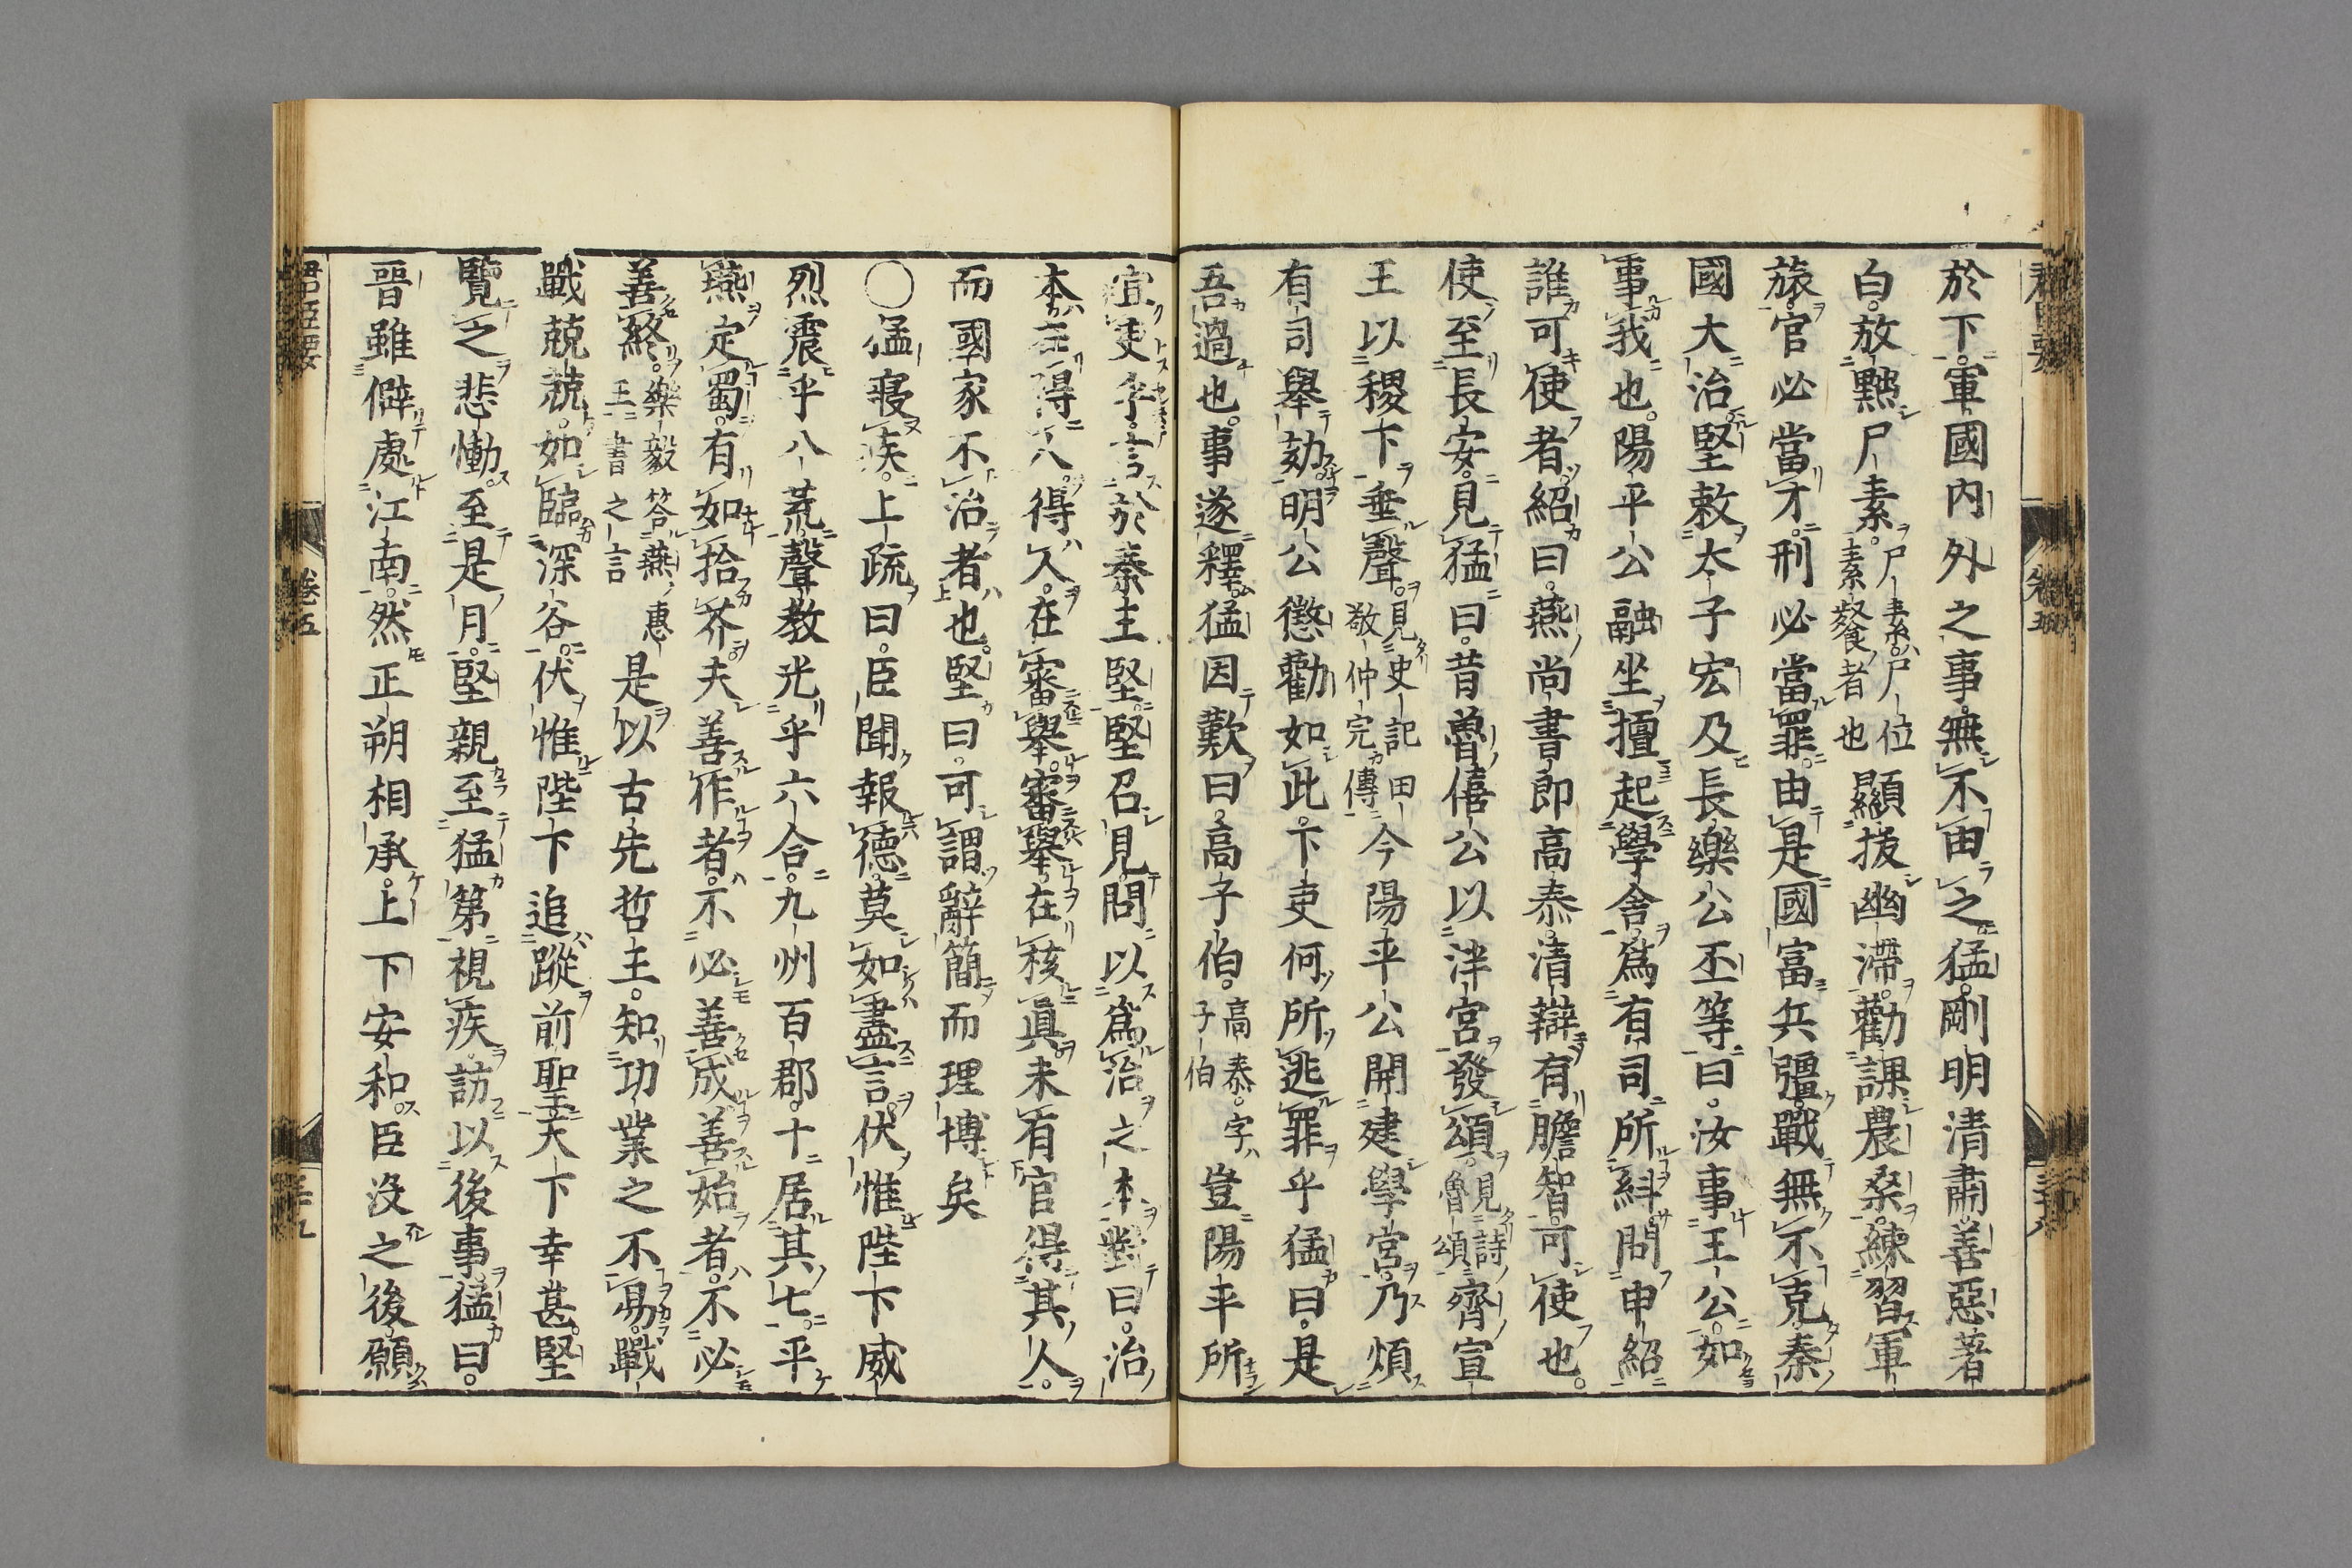 於下。軍國内外之事無不由之猛剛明清肅善惡著
白。放黜尸素。尸素。尸位素餐者也顯拔幽滯。勸課農桑。練習軍
旅。官必當才。刑必當罪。由是國富兵彊。戰無不克。秦
國大治。堅敕太子宏及長樂公丕等曰。汝事王公。如
事我也。陽平公融坐擅起學舍。爲有司所糾。問申紹
誰可使者。紹曰。燕尚書郎高泰。清辯有膽智。可使也。
使至長安。見猛曰。昔魯僖公以泮宮發頌。見詩魯頌齊宣
王以稷下垂聲。見史記田敬仲完傳今陽平公開建學宮。乃煩
有司舉劾。明公懲勸如此。下吏何所逃罪乎猛曰。是
吾過也。事遂釋。猛因歎曰。高子伯。高泰。字子伯豈陽平所
宜吏乎。言於秦主堅。堅召見。問以爲治之本。對曰。治
本在得人。得人。在審舉。審舉。在核眞。未有官得其人。
而國家不治者也。堅曰。可謂辭簡而理博矣
〇猛寢疾。上疏曰。臣聞報德。莫如盡言。伏惟陛下威
烈震乎八荒。聲教光乎六合。九州百郡。十居其七。平
燕定蜀。有如拾芥。夫善作者。不必善成。善始者。不必
善終。樂毅答燕惠王書之言是以古先哲王。知功業之不易。戰
戰兢兢。如臨深谷。伏惟陛下追蹤前聖。天下幸甚。堅
覽之悲慟。至是月。堅親至猛第視疾。訪以後事。猛曰。
晉雖僻處江南。然正朔相承。上下安和。臣沒之後。願
君臣要
卷五
三十九